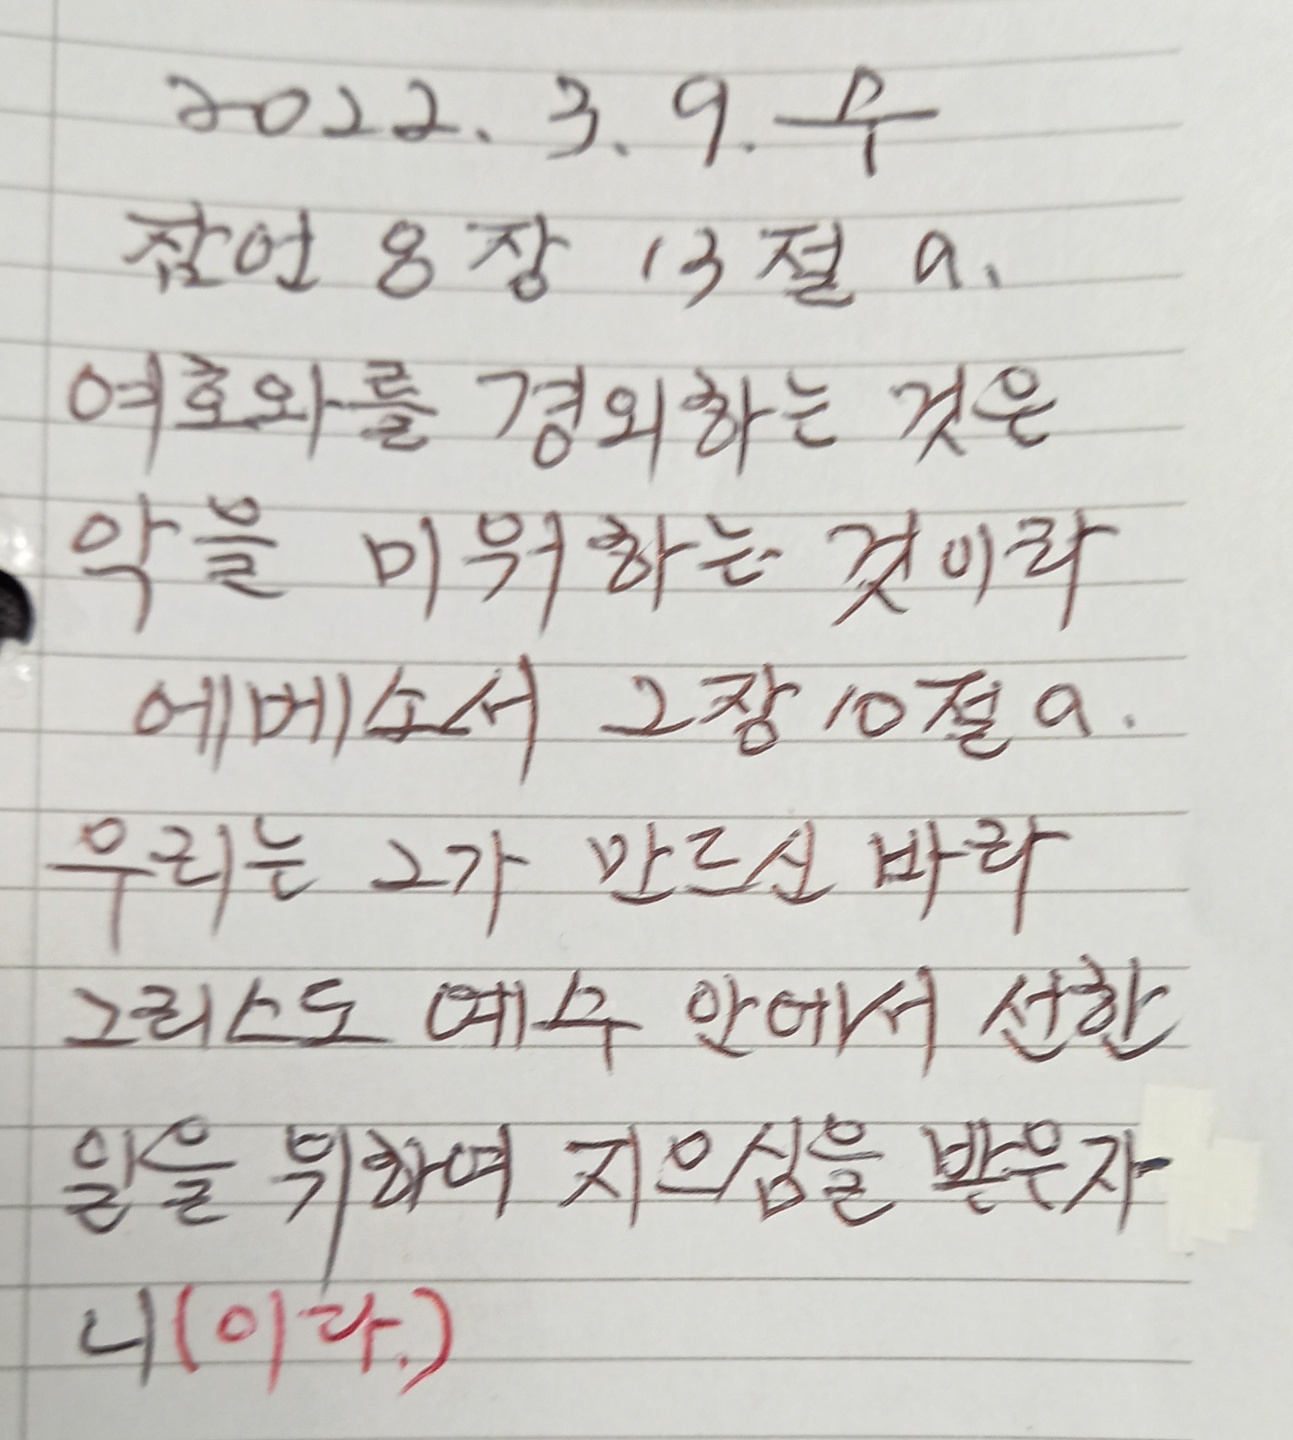 2022. 3. 9. 수
잠언 8장 13절 a.
여호와를 경외하는 것은
악을 미워하는 것이라
에베소서 2장 10절 a.
우리는 그가 만드신 바라
그리스도 예수 안에서 선한
일을 위하여 지으심을 받은자
니(이라.)